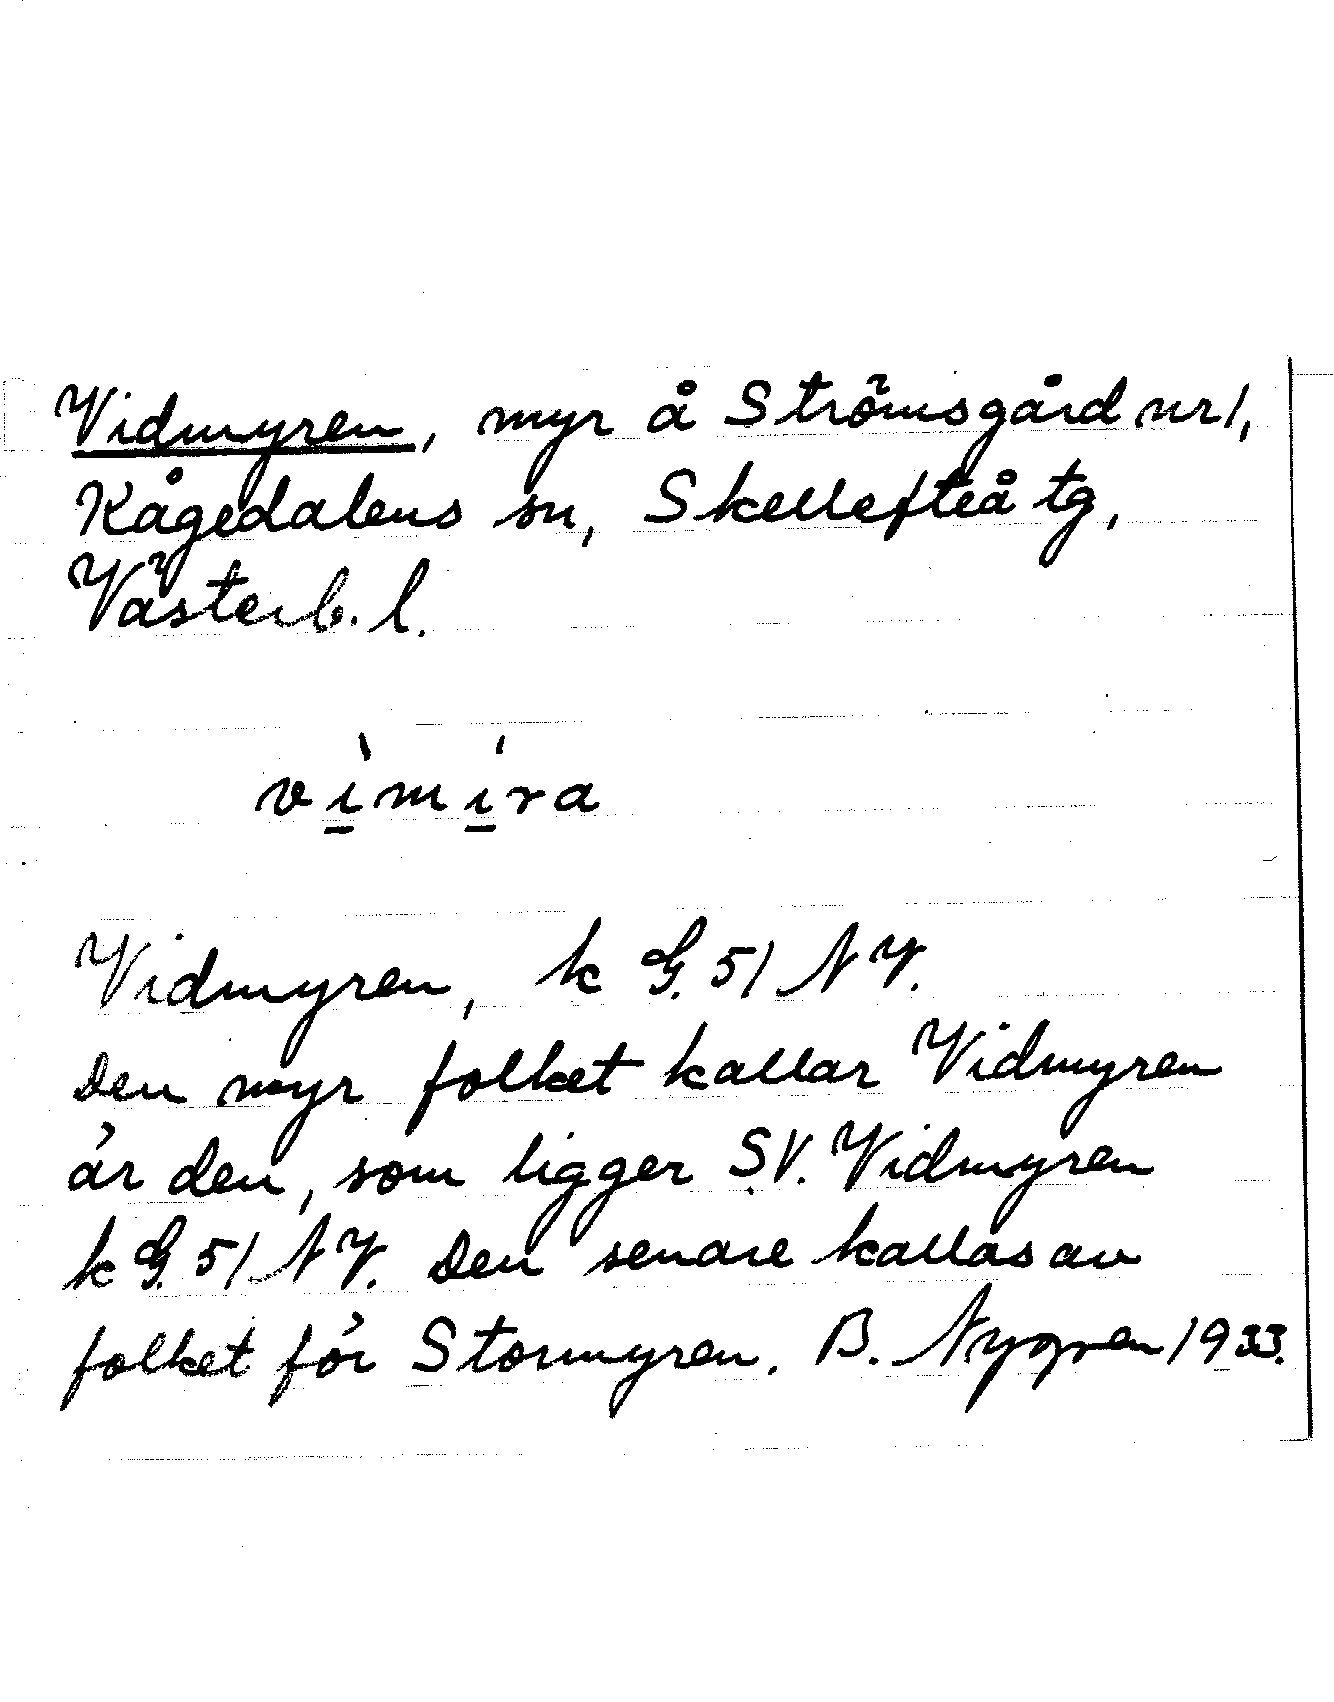 Vidmyren, myr å Strömsgård nr 1,
Kågedalens sn, Skellefteå tg,
Västerb. l.
vì̲mí̲ra
Vidmyren, k G. 51 NV.
Den myr folket kallar Vidmyren
är den, som ligger SV. Vidmyren
k G. 51 NV. Den senare kallas av
folket för Stormyren. B. Nygren 1933.